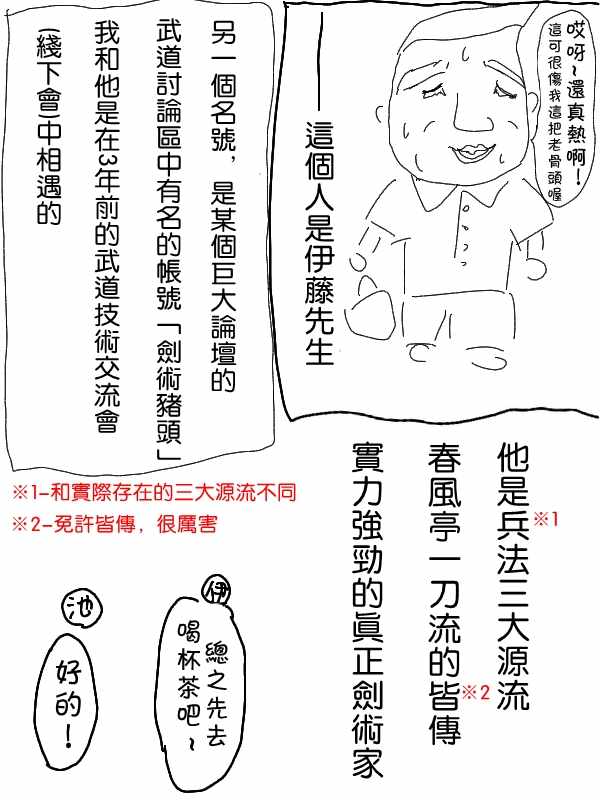 哎呀~還真熱啊！
這可很傷我這把老骨頭喔
——這個人是伊藤先生
另一個名號，是某個巨大論壇的
武道討論區中有名的帳號「劍術豬頭」
我和他是在3年前的武道技術交流會
(綫下會)中相遇的
他是兵法三大源流※1
春風亭一刀流的皆傳※2
實力強勁的真正劍術家
※1-和實際存在的三大源流不同
※2-免許皆傳，很厲害
伊
總之先去
喝杯茶吧~
池
好的！